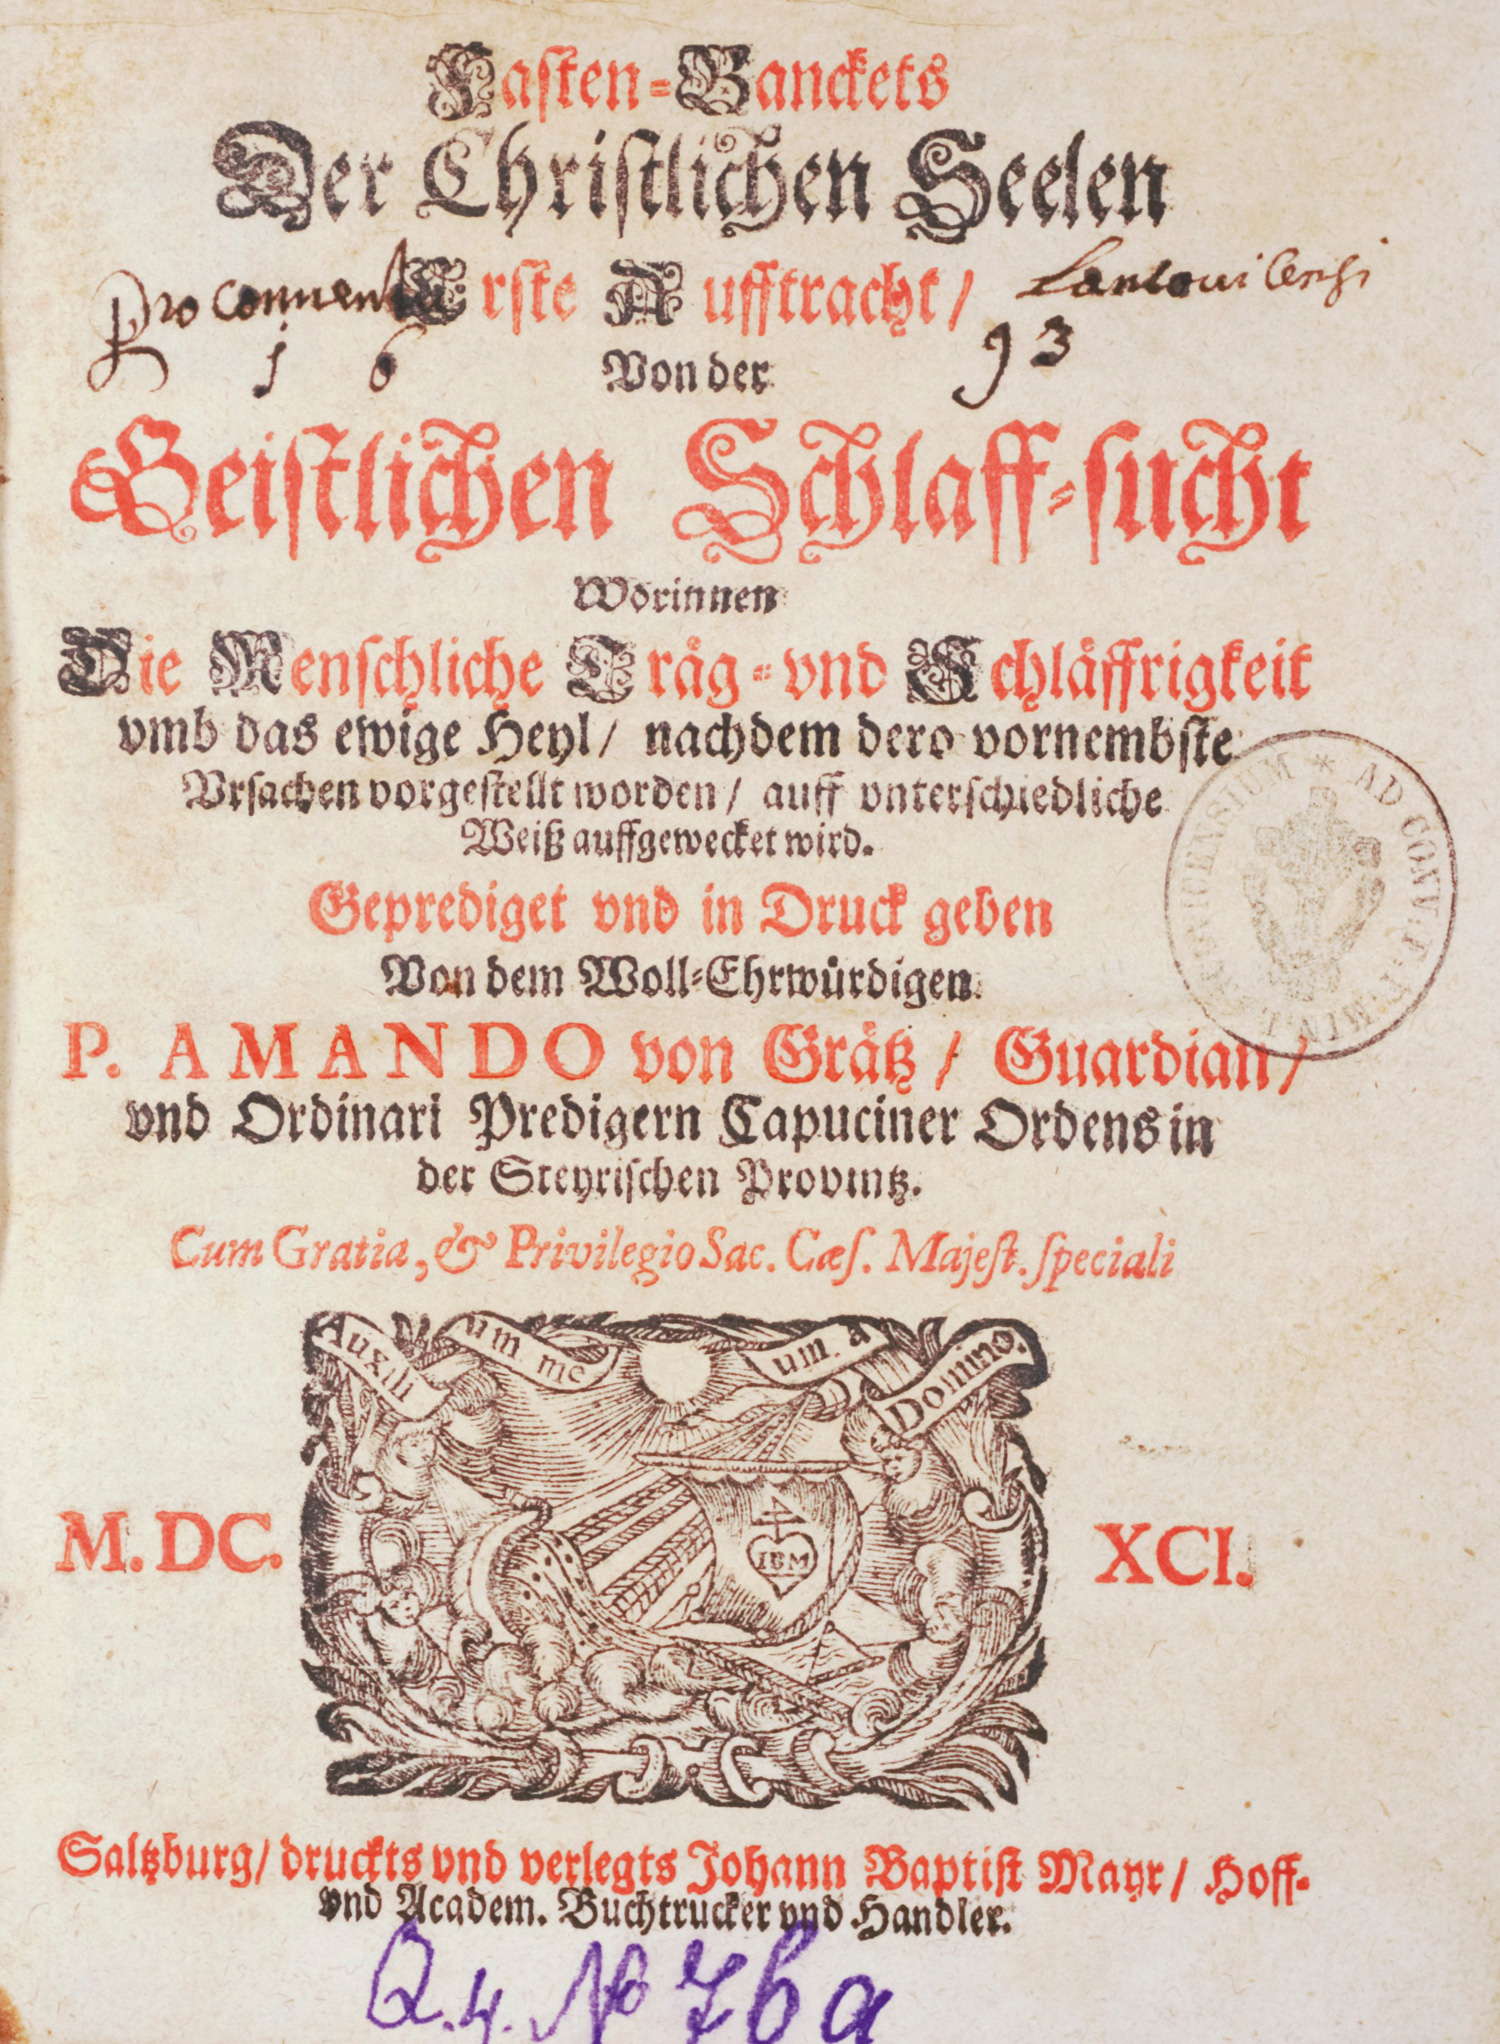 Fasten-Banckets
Der Christlichen Seelen
Erste Aufftracht/
Pro Conventu
1 6 93
Von der
Geistlichen Schlaff-sucht
Worinnen
Die Menschliche Träg- vnd Schläffrigkeit
vmb das ewige Heyl/ nachdem dero vornembste
Vrsachen vorgestellt worden/ auff vnterschiedliche
Weiß auffgewecket wird.
Geprediget vnd in Druck geben
Von dem Woll-Ehrwürdigen
P. AMANDO von Grätz / Guardian/
vnd Ordinari Predigern Capuciner Ordens in
der Steyrischen Provintz.
Cum Gratia, & Privilegio Sac. Cæs. Majest. speciali
Auxili um me um a Domino.
IBM
M. DC. XCI.
Saltzburg/ druckts vnd verlegts Johann Baptist Mayr/ Hoff-
vnd Academ. Buchtrucker vnd Handler.
Q. 4. No 76 a
* AD CONV. F. F. MIN.